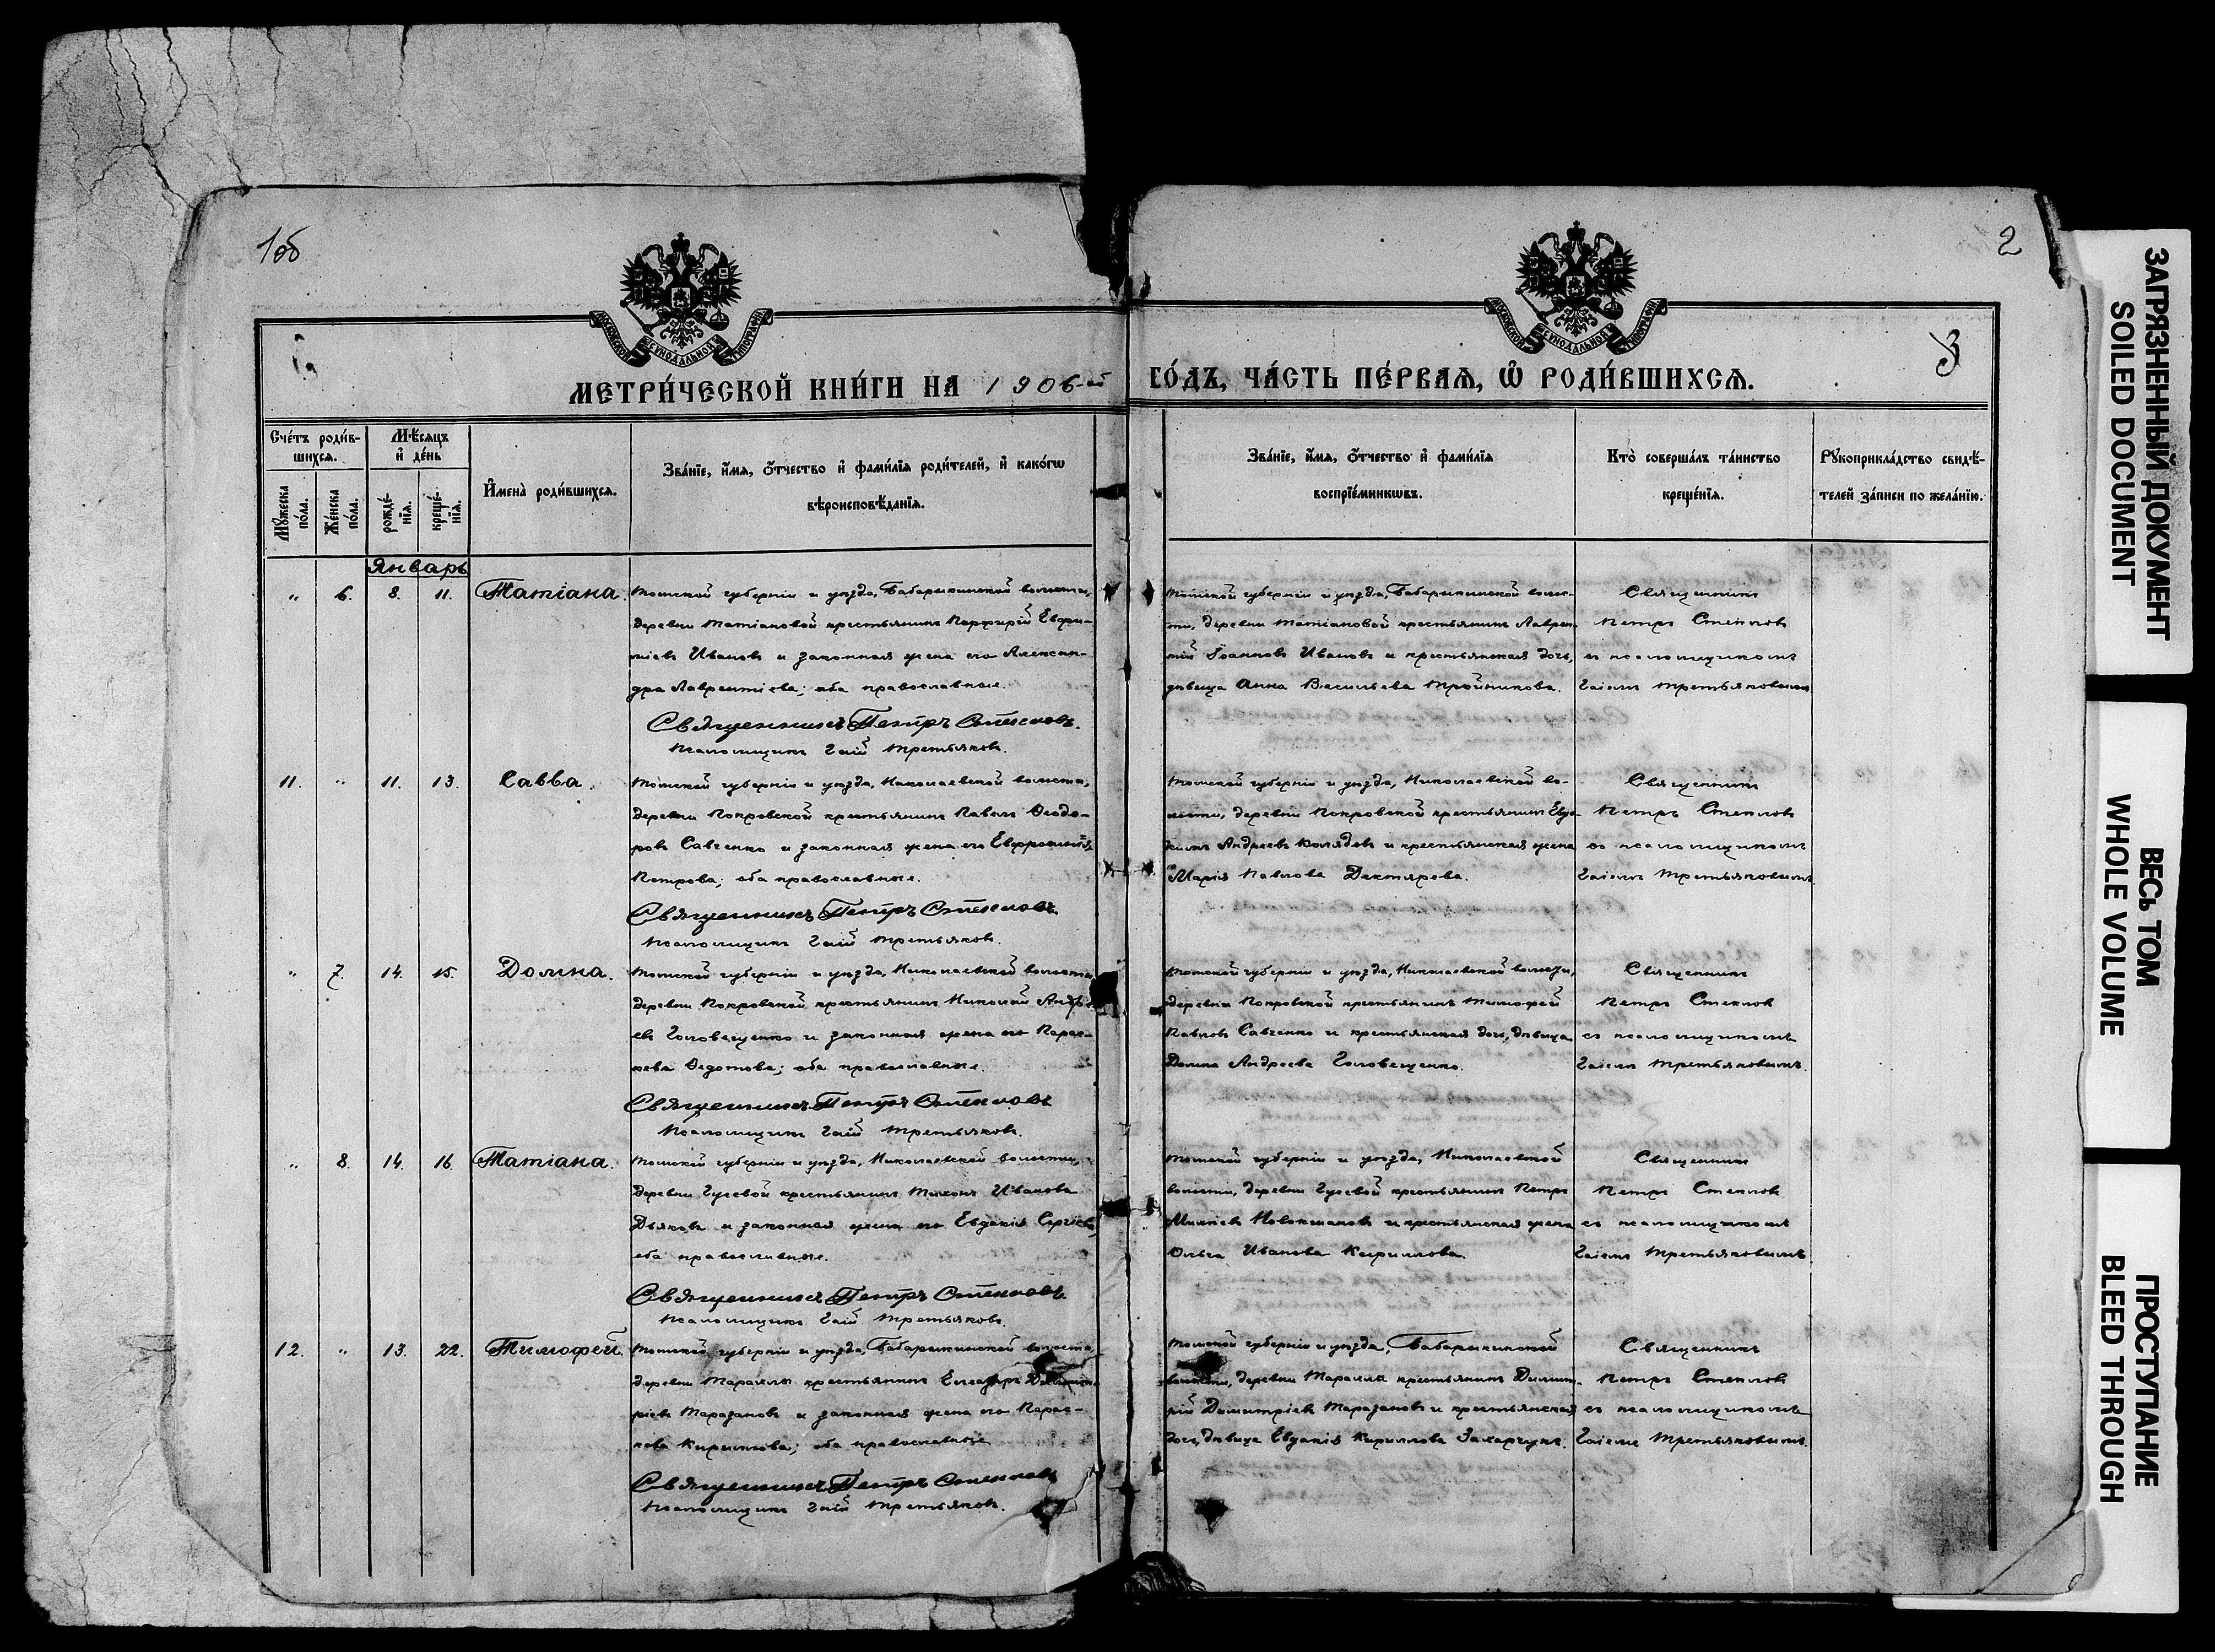 1об
2
3
МОСКОВСКОЙ СУНОДАЛЬНОЙ ТИПОГРАФІИ
МОСКОВСКОЙ СУНОДАЛЬНОЙ ТИПОГРАФІИ
МЕТРИ́ЧЕСКОЙ КНИ́ГИ НА 1906-ой ГО́ДЪ, ЧА́СТЬ ПЕ́РВАѦ, Ѽ РОДИ́ВШИХСѦ.
Счéтъ роди́в-
шихсѧ.
Мѣ́сѧцъ
и҆ дéнь
Мꙋ́жеска
пóла.
Жéнска
пóла.
рождé-
нїѧ.
крещé-
нїѧ.
И҆менà роди́вшихсѧ.
Звáнїе, и҆́мѧ, ѻ҆́тчество и҆ фами́лїѧ роди́телей, и҆ какóгѡ
вѣроисповѣ́данїѧ.
Звáнїе, и҆́мѧ, ѻ҆́тчество и҆ фами́лїѧ
воспрїéмникѡвъ.
Ктò совершáлъ тáинство
крещéнїѧ.
Рꙋкоприклáдство свидѣ́-
телей зáписи по желáнїю.
Январь
„ 6. 8. 11. Татіана.
Томской губерніи и уѣзда, Бабарыкинской волости,
деревни Татіановой крестьянинъ Порфирій Евфи-
міевъ Ивановъ и законная жена его Алексан-
дра Лаврентіева; оба православные.
Священникъ Петръ Стекловъ.
Псаломщикъ Гаій Третьяковъ.
Томской губерніи и уѣзда, Бабарыкинской волос-
ти, деревни Татіановой крестьянинъ Лаврен-
тій Іоанновъ Ивановъ и крестьянская дочь,
дѣвица Анна Васильева Тройникова.
Священникъ
Петръ Стекловъ
съ псаломщикомъ
Гаіемъ Третьяковымъ
11. „ 11. 13. Савва.
Томской губерніи и уѣзда, Николаевской волости,
деревни Покровской крестьянинъ Павелъ Ѳеодо-
ровъ Савченко и законная жена его Евфросинія
Петрова; оба православные.
Священникъ Петръ Стекловъ
Псаломщикъ Гаій Третьяковъ.
Томской губерніи и уѣзда, Николаевской во-
лости, деревни Покровской крестьянинъ Евдо-
кимъ Андреевъ и крестьянская жена
Марія Павлова Дектярева.
Священникъ
Петръ Стекловъ
съ псаломщикомъ
Гаіемъ Третьяковымъ.
„ 7. 14. 15. Домна.
Томской губерніи и уѣзда, Николаевской волости,
деревни Покровской крестьянинъ Николай Андре-
евъ Головещенко и законная жена его Парас-
кева Ѳедотова; оба православные.
Священникъ Петръ Стекловъ
Псаломщикъ Гаій Третьяковъ.
Томской губерніи и уѣзда, Николаевской волости,
деревни Покровской крестьянинъ Тимофей
Павловъ Савченко и крестьянская дочь, дѣвица
Домна Андреева Головещенко.
Священникъ
Петръ Стекловъ
съ псаломщикомъ
Гаіемъ Третьяковымъ.
„ 8. 14. 16. Татіана.
Томской губерніи и уѣзда, Николаевской волости,
деревни Гусевой крестьянинъ Тихонъ Иванова
Дьяковъ и законная жена его Евдокія Сергіева,
оба православные.
Священникъ Петръ Стекловъ.
Псаломщикъ Гаій Третьяковъ.
Томской губерніи и уѣзда, Николаевской
волости, деревни Гусевой крестьянинъ Петръ
и крестьянская жена
Ольга Иванова Кириллова.
Священникъ
Петръ Стекловъ
съ псаломщикомъ
Гаіемъ Третьяковымъ
12. „ 13. 22. Тимофей.
Томской губерніи и уѣзда, Бабарыкинской волости,
деревни Мараллы крестьянинъ Елеазаръ Димит-
ріевъ Таразановъ и законная жена его Парас-
кева Кириллова; оба православные
Священникъ Петръ Стекловъ
Псаломщикъ Гаій Третьяковъ.
Томской губерніи и уѣзда, Бабарыкинской
волости, деревни Мараллы крестьянинъ Димит-
рій Димитріевъ Таразановъ и крестьянская
дочь, дѣвица Евдокія Кириллова Захарчукъ.
Священникъ
Петръ Стекловъ
съ псаломщикомъ
Гаіемъ Третьяковымъ.
ЗАГРЯЗНЕННЫЙ ДОКУМЕНТ
SOILED DOCUMENT
ВЕСЬ ТОМ
WHOLE VOLUME
ПРОСТУПАНИЕ
BLEED THROUGH